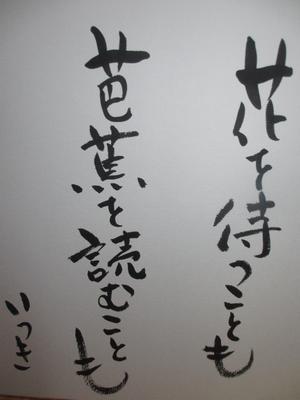 花を待つことも
芭蕉を読むことも
いつき